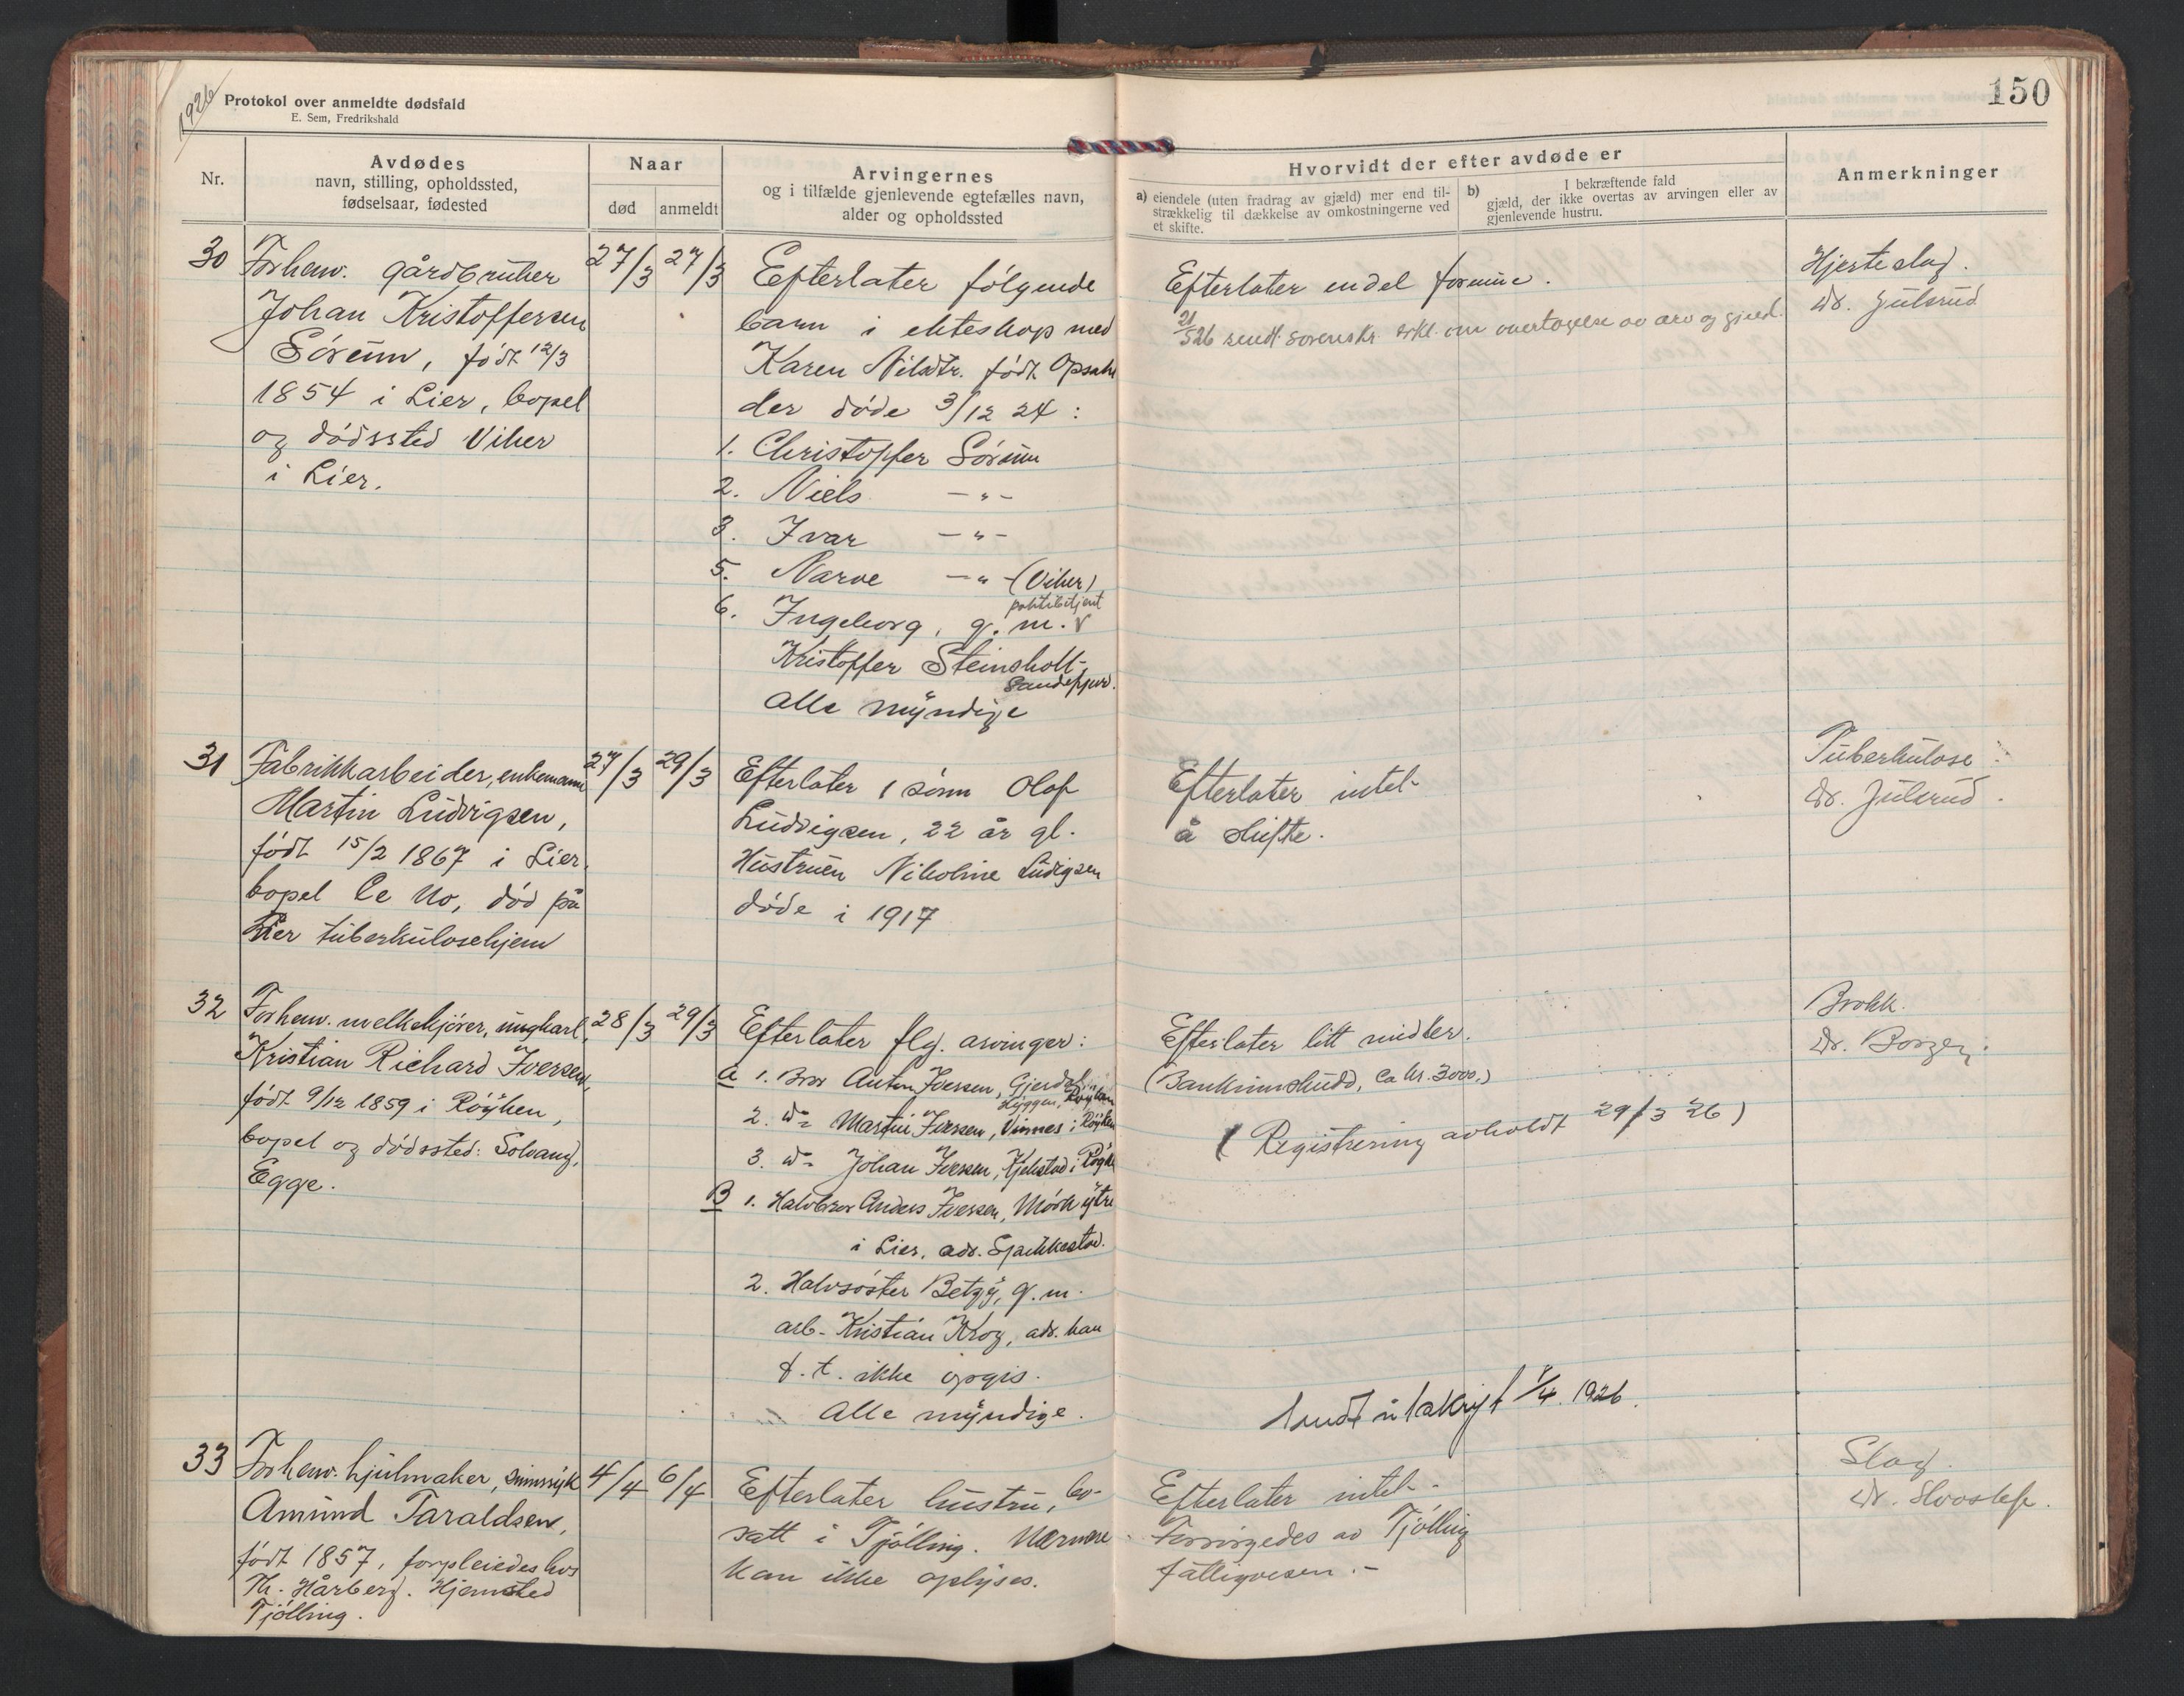 1926
Protokol over anmeldte dødsfald
E. Sem, Fredrikshald
150
Nr.
Avdødes
navn, stilling, opholdssted,
fødselsaar, fødested
Naar
død
anmeldt
Arvingernes
og i tilfælde gjenlevende egtefælles navn,
alder og opholdssted
Hvorvidt der efter avdøde er
a) eiendele (uten fradrag av gjæld) mer end til-
strækkelig til dækkelse av omkostningerne ved
et skifte.
b) I bekræftende fald
gjæld, der ikke overtas av arvingen eller av
gjenlevende hustru.
Anmerkninger
30
Forhenv. gårdbruker
Johan Kristoffersen
Sörum, födt 12/3
1854 i Lier, bopel
og dödssted Viker
i Lier.
27/3
27/3
Efterlater fölgende
barn i ekteskap med
Karen Nilsdtr. födt Opsahl
der döde 3/12 24:
1. Christoffer Sörum
2. Niels -"-
3. Ivar -"-
5. Narve -"- (Viker)
politibetjent
6. Ingeborg, g. m.
Kristoffer Steinsholt-
Sandefjord.
Alle myndige
Efterlater endel formue.
21/5 26 sendt sorenskr. erkl. om overtagelse av arv og gjeld.
Hjerteslag.
Dr. Julsrud
31
Fabrikkarbeider, enkemann
Martin Ludvigsen,
födt 15/2 1867 i Lier,
bopel Ce No, död på
Lier tuberkulosehjem
27/3
29/3
Efterlater 1 sönn Olaf
Ludvigsen, 22 år gl.
Hustruen Nikoline Ludigsen
döde i 1917
Efterlater intet
å skifte.
Tuberkulose
Dr. Julsrud.
32
Forhenv. melkekjörer, ungkarl,
Kristian Richard Iversen,
födt 9/12 1859 i Röyken,
bopel og dödssted: Solvang,
Egge.
28/3
29/3
Efterlater flg. arvinger:
A 1. Bror Anton Iversen, Gjerdal,
Hyggen, Röyken
2. do Martin Iversen, Vinnes i Röyken
3. do Johan Iversen, Kjekstad i Röyk
B 1. Halvbror Anders Iversen, Mörk ytre
i Lier, adr. Spikkestad.
2. Halvsöster Betzy, g. m.
arb. Kristian Krog, adr. kan
f. t. ikke opgis.
Alle myndige.
Efterlater litt midler.
(Bankinnskudd, ca kr. 3000.)
(Registrering avholdt 29/3 26)
1/4. 1926.
Brokk.
Dr. Borgen.
33
Forhenv. hjulmaker, sinnssyk
Amund Taraldsen,
födt 1857, forpleiedes hos
Th. Hårberg. Hjemsted
Tjölling.
4/4
6/4
Efterlater hustru, bo-
satt i Tjölling. Nærmere
kan ikke oplyses.
Efterlater intet.
Forsörgedes av Tjölling
fattigvesen.-
Slag.